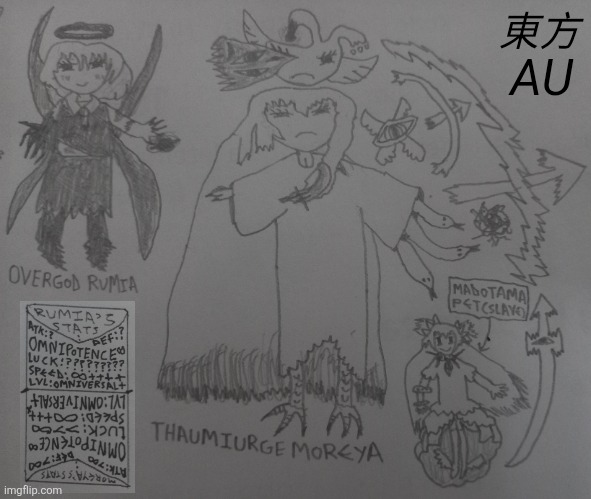 東方
AU
OVERGOD RUMIA
MADOTAMA
PET(SLAVE)
RUMIA'S
STATS
ATK:? DEF:?
OMNIPOTENCE∞
LUCK:?????????
SPEED:∞++++
LVL:OMNIVERSAL+
LVL:OMNIVERSAL+
SPEED:∞+++
OMNIPOTENCE∞
ATK:700 DEF:700
MOREYA'S STATS
THAUMIURGE MOREYA
imgflip.com